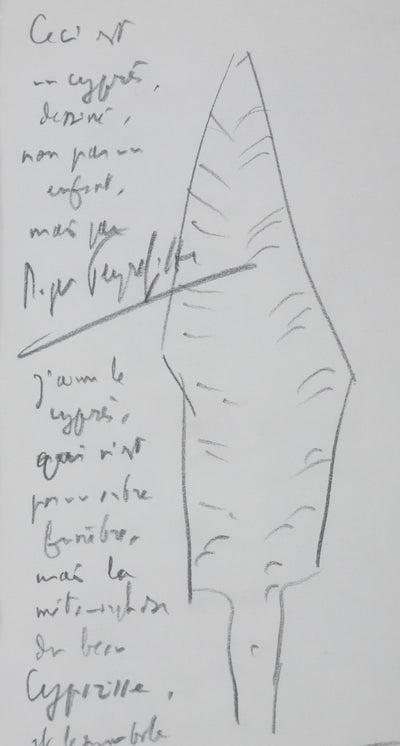 Ceci est
un cyprès,
dessiné,
non par un
enfant,
mais par
Roger Peyrefitte
j'aime le
cyprès,
qui n'est
pas un arbre
funèbre,
mais la
métamorphose
du beau
Cyparisse,
et le symbole